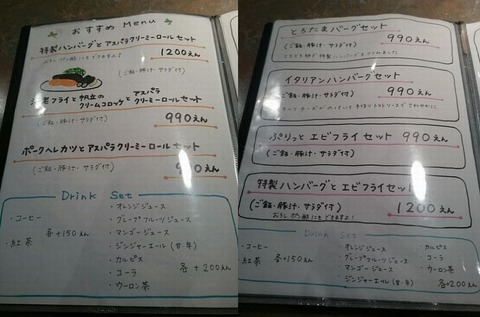 おすすめ Menu
特製ハンバーグとアスパラクリーミーロールセット
1200えん
(ご飯・豚汁・サラダ付)
海老フライと帆立のクリームコロッケとアスパラクリーミーロールセット
(ご飯・豚汁・サラダ付)
990えん
ポークヘレカツとアスパラクリーミーロールセット
(ご飯・豚汁・サラダ付)
990えん
Drink Set
・コーヒー
・紅茶
各+150えん
・オレンジジュース
・グレープフルーツジュース
・マンゴージュース
・ジンジャーエール(甘・辛)
・カルピス
・コーラ
・ウーロン茶
各+200えん
とろたまバーグセット
990えん
(ご飯・豚汁・サラダ付)
イタリアンハンバーグセット
990えん
(ご飯・豚汁・サラダ付)
ぷりっとエビフライセット 990えん
(ご飯・豚汁・サラダ付)
特製ハンバーグとエビフライセット
(ご飯・豚汁・サラダ付)
1200えん
おろしポン酢にもできますよ!
Drink Set
・コーヒー
・紅茶
各+150えん
・オレンジジュース
・グレープフルーツジュース
・マンゴージュース
・ジンジャーエール(甘・辛)
・カルピス
・コーラ
・ウーロン茶
各+200えん